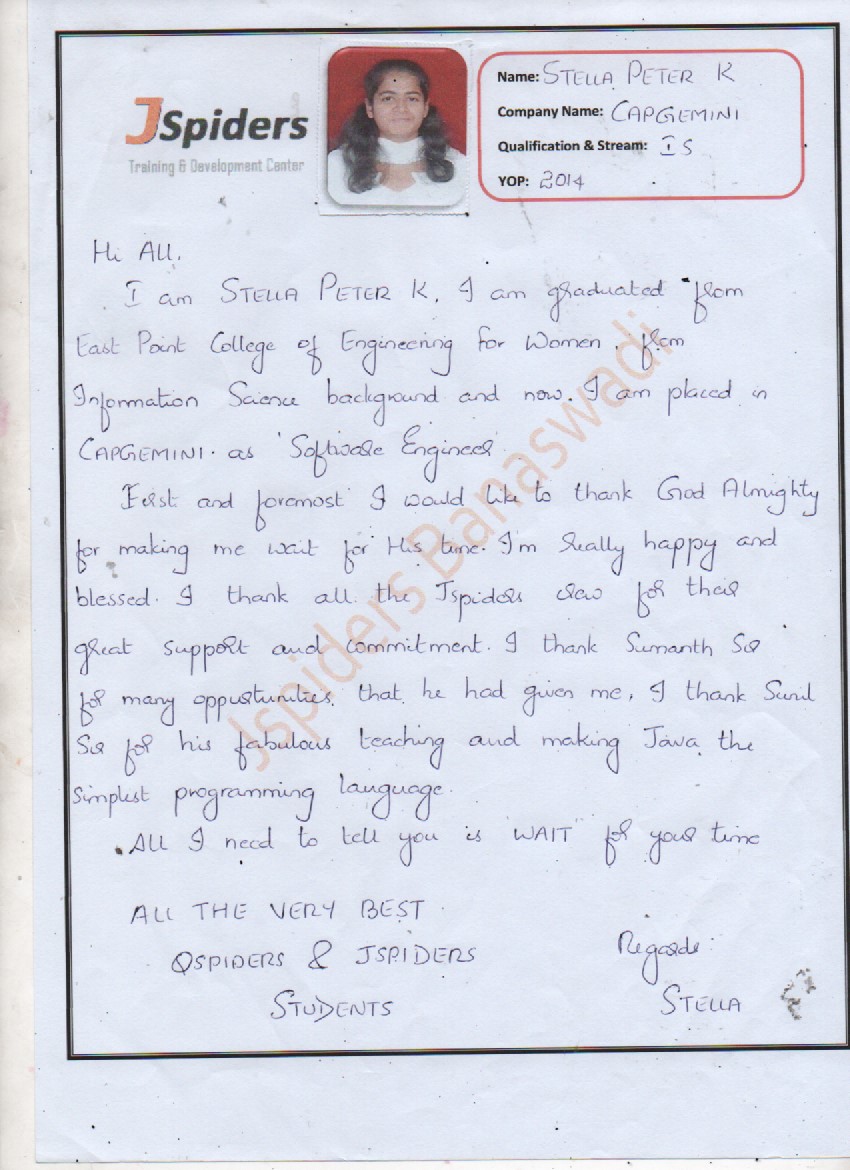 JSpiders
Training & Development Center
Name: STELLA PETER K
Company Name: CAPGEMINI
Qualification & Stream: IS
YOP: 2014
Hi All,
I am STELLA PETER K, I am graduated from
East Point College of Engineering for Women, from
Information Science background and now. I am placed in
CAPGEMINI. as 'Software Engineer'.
First and foremost I would like to thank God Almighty
for making me wait for His time. I'm really happy and
blessed. I thank all the Jspiders crew for their
great support and commitment. I thank Sumanth Sir
for many oppurtunities, that he had given me, I thank Sunil
Sir for his fabulous teaching and making Java the
Simplest programming language.
All I need to tell you is "WAIT" for your time
ALL THE VERY BEST
QSPIDERS & JSPIDERS
STUDENTS
Regards:
STELLA
Jspiders Banaswadi